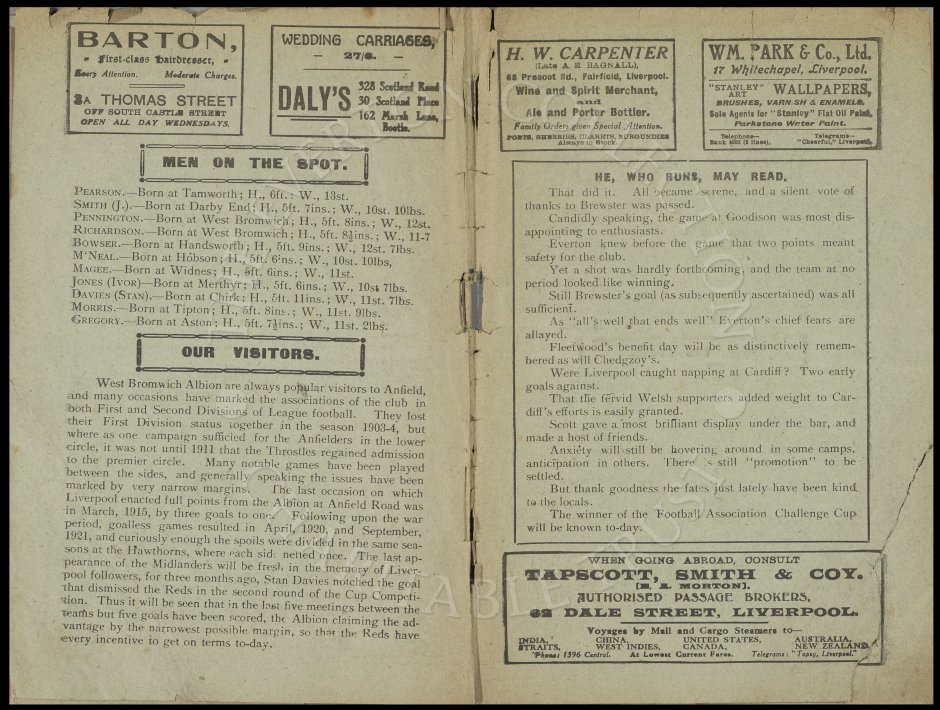 BARTON,
First-class Hairdresser,
Every Attention. Moderate Charges.
3A THOMAS STREET
OFF SOUTH CASTLE STREET
OPEN ALL DAY WEDNESDAYS.
WEDDING CARRIAGES,
— 27/6. —
DALY'S
328 Scotland Road
30 Scotland Place
162 Marsh Lane,
Bootle.
MEN ON THE SPOT.
PEARSON.—Born at Tamworth; H., 6ft.: W., 13st.
SMITH (J.).—Born at Darby End; H., 5ft. 7ins.; W., 10st. 10lbs.
PENNINGTON.—Born at West Bromwich; H., 5ft. 8ins.; W., 12st.
RICHARDSON.—Born at West Bromwich; H., 5ft. 8½ins.; W., 11-7
BOWSER.—Born at Handsworth; H., 5ft. 9ins.; W., 12st. 7lbs.
M'NEAL.—Born at Hobson; H., 5ft. 6ins.; W., 10st. 10lbs,
MAGEE.—Born at Widnes; H., 5ft. 6ins.; W., 11st.
JONES (IVOR)—Born at Merthyr; H., 5ft. 6ins.; W., 10st 7lbs.
DAVIES (STAN).—Born at Chirk; H., 5ft. 11ins.; W., 11st. 7lbs.
MORRIS.—Born at Tipton; H., 5ft. 8ins.; W., 11st. 9lbs.
GREGORY.—Born at Aston; H., 5ft. 7½ins.; W., 11st. 2lbs.
OUR VISITORS.
West Bromwich Albion are always popular visitors to Anfield,
and many occasions have marked the associations of the club in
both First and Second Divisions of League football. They lost
their First Division status together in the season 1903-4, but
where as one campaign sufficed for the Anfielders in the lower
circle, it was not until 1911 that the Throstles regained admission
to the premier circle. Many notable games have been played
between the sides, and generally speaking the issues have been
marked by very narrow margins. The last occasion on which
Liverpool enacted full points from the Albion at Anfield Road was
in March, 1915, by three goals to one. Following upon the war
period, goalless games resulted in April, 1920, and September,
1921, and curiously enough the spoils were divided in the same sea-
sons at the Hawthorns, where each side netted once. The last ap-
pearance of the Midlanders will be fresh in the memory of Liver-
pool followers, for three months ago, Stan Davies notched the goal
that dismissed the Reds in the second round of the Cup Competi-
tion. Thus it will be seen that in the last five meetings between the
teams but five goals have been scored, the Albion claiming the ad-
vantage by the narrowest possible margin, so that the Reds have
every incentive to get on terms to-day.
H. W. CARPENTER
(Late A. E BAGNALL),
68 Prescot Rd., Fairfield, Liverpool.
Wine and Spirit Merchant,
and
Ale and Porter Bottler.
Family Orders given Special Attention.
PORTS, SHERRIES, CLARETS, BURGUNDIES
Always in Stock.
WM. PARK & Co., Ltd.
17 Whitechapel, Liverpool.
"STANLEY" ART WALLPAPERS,
BRUSHES, VARNISH & ENAMELS.
Sole Agents for "Stanley" Flat Oil Paint.
Parkstone Water Paint.
Telephone— Telegrams—
Bank 4092 (2 lines), "Cheerful," Liverpool.
HE, WHO RUNS, MAY READ.
That did it. All became serene, and a silent vote of
thanks to Brewster was passed.
Candidly speaking, the game at Goodison was most dis-
appointing to enthusiasts.
Everton knew before the game that two points meant
safety for the club.
Yet a shot was hardly forthcoming, and the team at no
period looked like winning.
Still Brewster's goal (as subsequently ascertained) was all
sufficient.
As "all's well that ends well" Everton's chief fears are
allayed.
Fleetwood's benefit day will be as distinctively remem-
bered as will Chedgzoy's.
Were Liverpool caught napping at Cardiff? Two early
goals against.
That the fervid Welsh supporters added weight to Car-
diff's efforts is easily granted.
Scott gave a most brilliant display under the bar, and
made a host of friends.
Anxiety will still be hovering around in some camps,
anticipation in others. There is still "promotion" to be
settled.
But thank goodness the fates just lately have been kind
to the locals.
The winner of the Football Association Challenge Cup
will be known to-day.
WHEN GOING ABROAD, CONSULT
TAPSCOTT, SMITH & COY.
[E. A. MORTON].
AUTHORISED PASSAGE BROKERS,
62 DALE STREET, LIVERPOOL.
Voyages by Mail and Cargo Steamers to—
INDIA, CHINA, UNITED STATES, AUSTRALIA,
STRAITS, WEST INDIES, CANADA, NEW ZEALAND,
'Phone: 1396 Central. At Lowest Current Fares. Telegrams: "Tapsy, Liverpool."